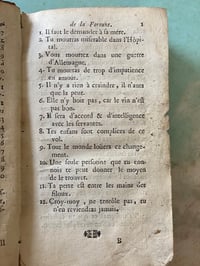 de la Fortune. 1
1. Il faut le demander à sa mère.
2. Tu mourras miserable dans l'Hôpi-
tal.
3. Vous mourrez dans une guerre
d'Allemagne.
4. Tu mourras de trop d'impatience
en amour.
5. Il n'y a rien à craindre, il n'aura
que la peur.
6. Elle n'y boit pas, car le vin n'est
pas bon.
7. Il sera d'accord & d'intelligence
avec les servantes.
8. Tes enfans sont complices de ce
vol.
9. Tout le monde loüera ce change-
ment.
10. Une seule personne que tu con-
nois te peut donner le moyen
de le trouver.
11. Ta perte est entre les mains des
filoux.
12. Croy-moy, ne t'enrôle pas, tu
n'en reviendras jamais.
B